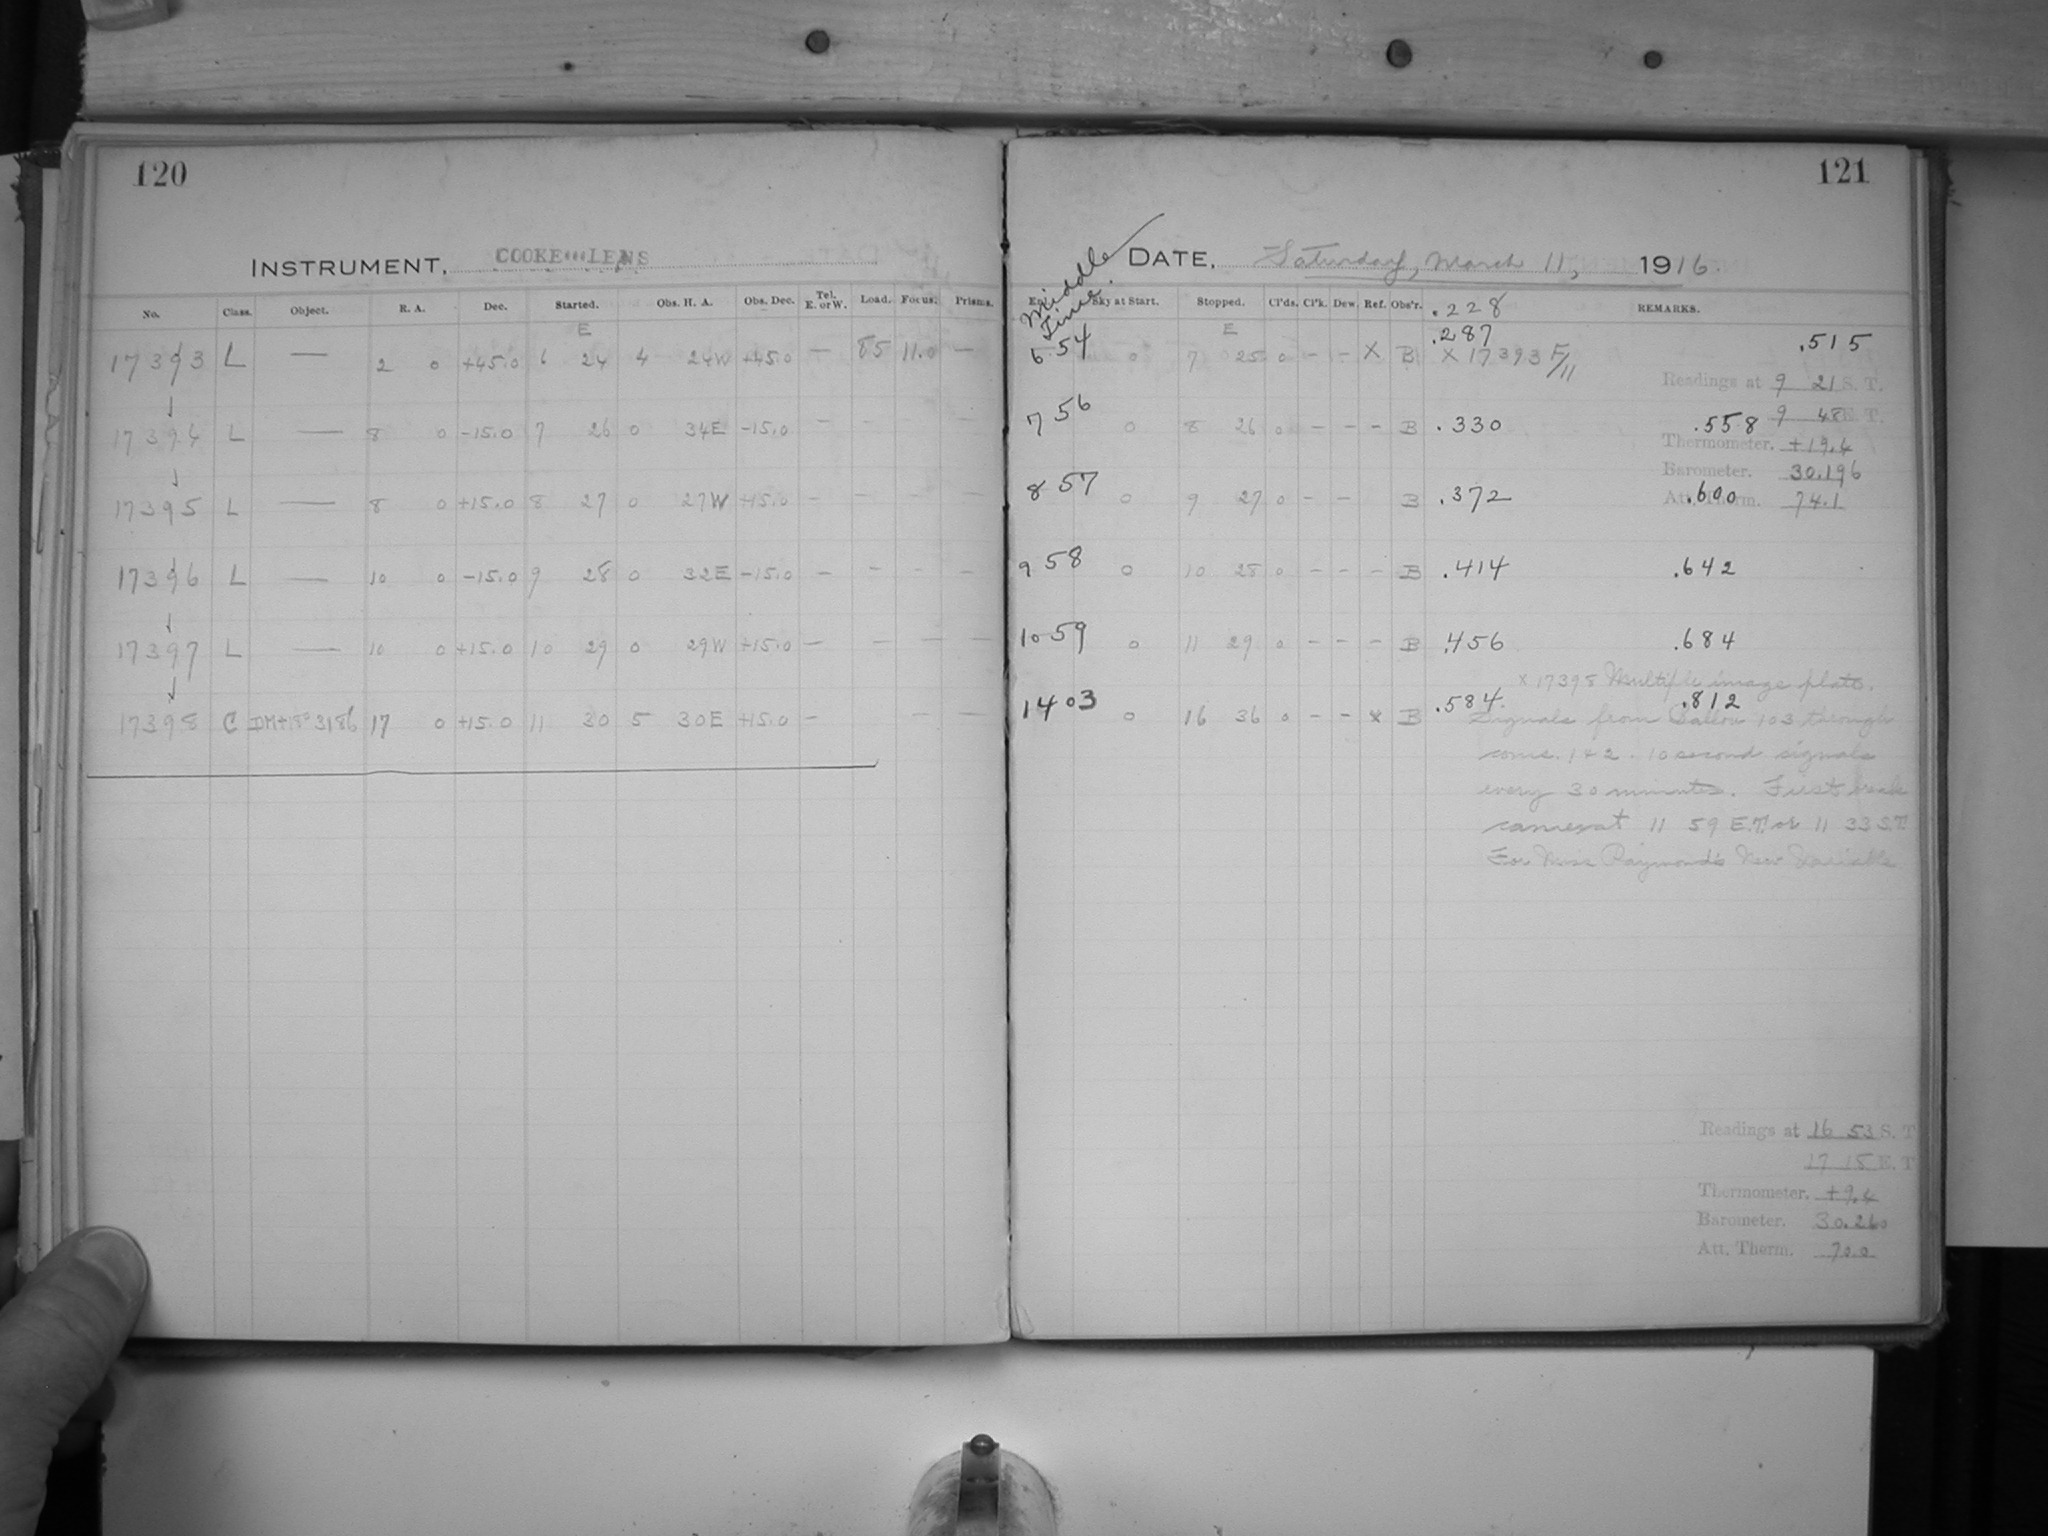 120
INSTRUMENT, COOKE LENS
No. Class. Object. R. A. Dec. Started. Obs. H. A. Obs. Dec. Tel. E. or W. Load. Focus. Prisms.
E
17393 L — 2 0 +45.0 6 24 4 24W +45.0 — 85 11.0 —
17394 L — 8 0 -15.0 7 26 0 34E -15.0 — — — —
17395 L — 8 0 +15.0 8 27 0 27W +15.0 — — — —
17396 L — 10 0 -15.0 9 28 0 32E -15.0 — — — —
17397 L — 10 0 +15.0 10 29 0 29W +15.0 — — — —
17398 C DM+18° 3186 17 0 +15.0 11 30 5 30E +15.0 — — —
121
Middle Time.
DATE, Saturday, March 11, 1916.
Sky at Start. Stopped. Cl'ds. Cl'k. Dew. Ref. Obs'r. REMARKS.
.228
E
6 54 0 7 25 0 - - X B .287 .515
X 17393 F/11
Readings at 9 21 S. T.
9 48 E. T.
7 56 0 8 26 0 - - - B .330 .558
Thermometer. +19.4
Barometer. 30.196
Att. Therm. 74.1
8 57 0 9 27 0 - - B .372 .600
9 58 0 10 28 0 - - - B .414 .642
10 59 0 11 29 0 - - - B .456 .684
x 17398 Multiple image plate.
14 03 0 16 36 0 - - x B .584 .812
Signals from Ballou 103 through
coms. 1+2. 10 second signals
every 30 minutes. First break
comes at 11 59 E.T. or 11 33 S.T.
For Miss Raymond's New Variable
Readings at 16 53 S. T.
17 15 E. T.
Thermometer. +9.4
Barometer. 30.260
Att. Therm. 70.0